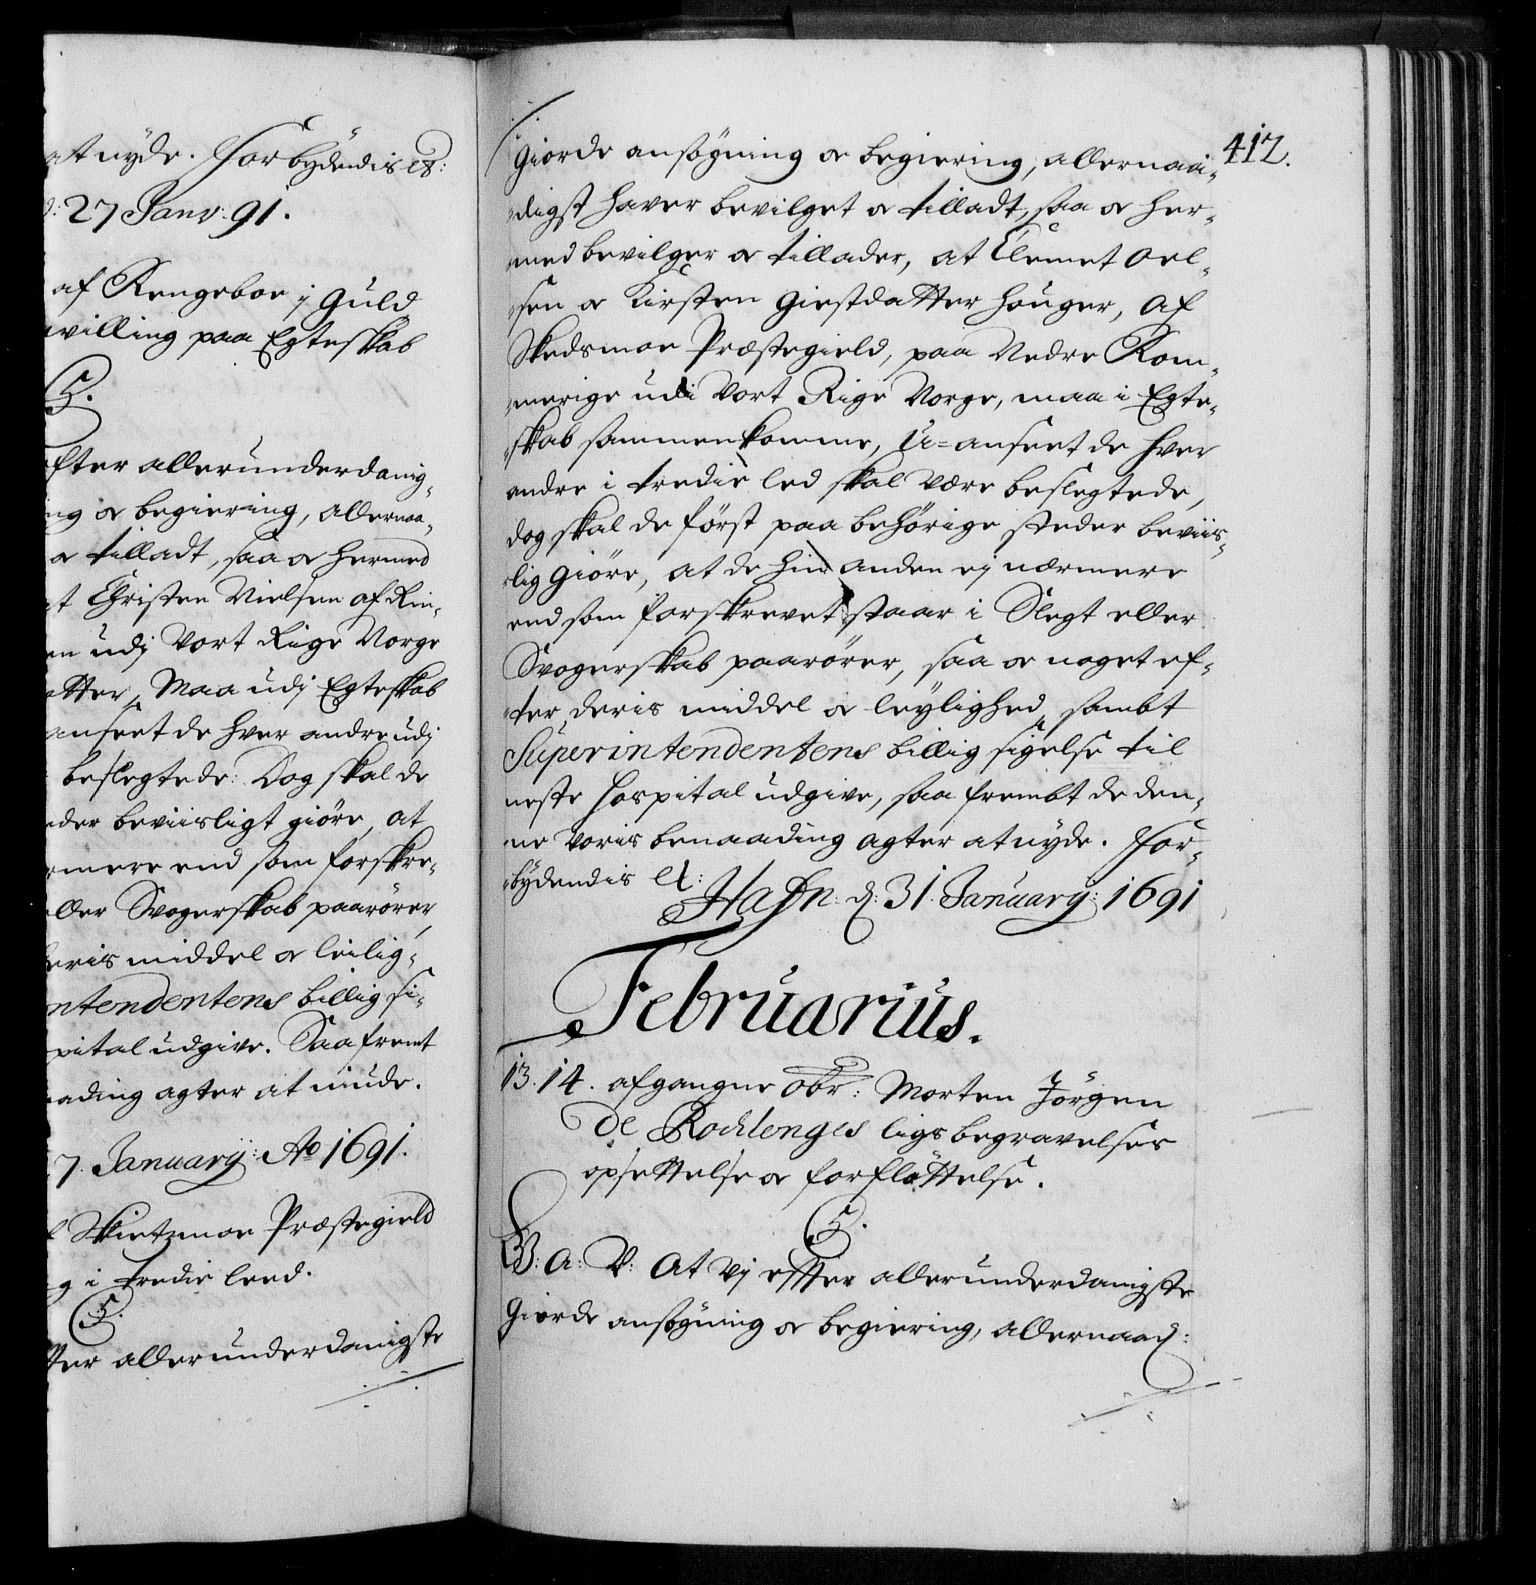 at nyde. Forbydendis etc:
27 Janv: 91.
af Rengeboe j Guld
willing paa Egteskab
C5.
fter allerunderdanig-
ng oc begiering, allernaa-
oc tilladt, saa oc hermed
at Christen Nielsen af Rin-
en udj Vort Rige Norge
atter, Maa udj Egteskab
anseet de hver andre udj
beslegtede: Dog skal de
eder beviisligt giöre, at
rmere end som forskre-
ller Svogerskab paarörer,
eris middel oc leilig-
ntendentens billig si-
pital udgive. Saa fremt
ading agter at niude.
7. Januarij: Ao 1691.
Skietzmoe Præstegield
g i tredie leed.
C5.
ter allerunderdanigste
412.
giorde ansögning oc begiering, allernaa-
digst haver bevilget oc tilladt, saa oc her-
med bevilger oc tillader, at Clemet Oel-
sen oc Kirsten Giestdatter Houger, af
Skedsmoe Præstegield, paa Nedre Rom-
merige udi Vort Rige Norge, maa i Egte-
skab sammenkomme, U=anseet de hver
andre i tredie led skal være beslegtede,
dog skal de först paa behörige steder beviis-
lig giöre, at de hin anden ej nærmere
end som forskrevet staar i Slegt eller
Svogerskab paarörer, saa oc noget ef-
ter deris middel oc leylighed, sambt
Superintendentens billig sigelse til
neste Hospital udgive, saa frembt de den-
ne Voris benaading agter at nyde. For-
bydendis etc:
Hafn: d: 31. Januarij: 1691
Februarius.
13. 14. afgangne Obr: Morten Jörgen
De Rochlenges ligs begravelses
opsettelse oc forflöttelse.
C5.
G: A: V: At Vj effter allerunderdanigste
Giorde ansögning oc begiering, allernaad: